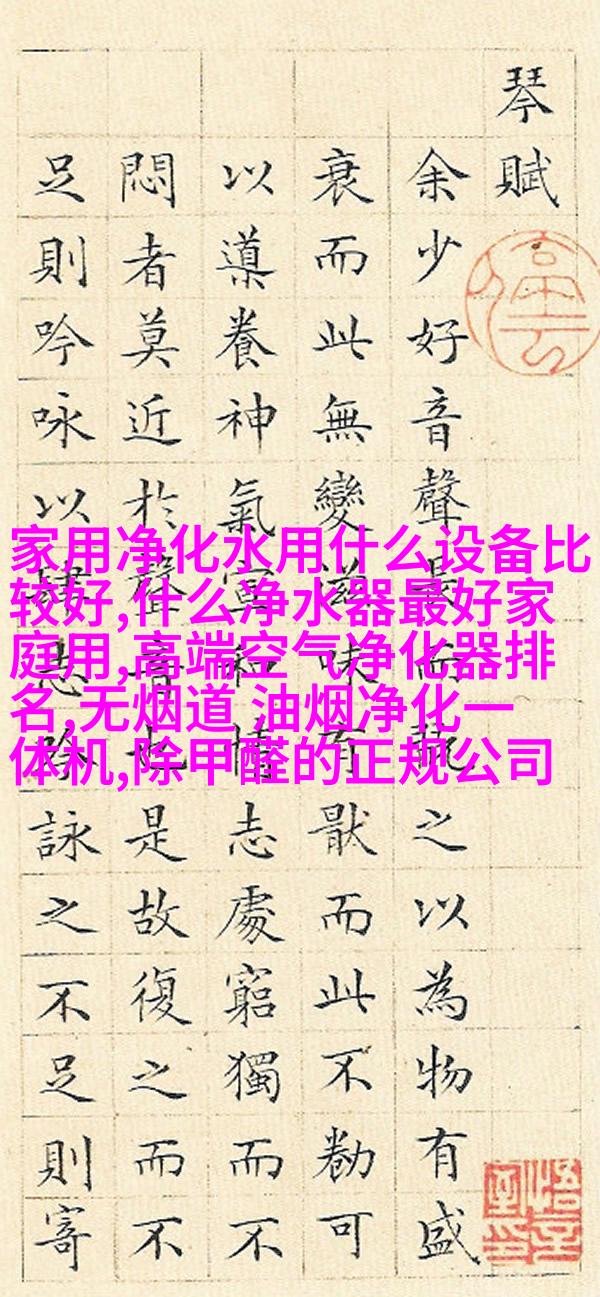 琴賦
余少好音聲長而翫之以為物有盛
衰而此無變滋味有猒而此不勌可
以導養神氣宣和情志處窮獨而不
悶者莫近於聲音也是故復之而不
足則吟咏以肆志吟詠之不足則寄
家用净化水用什么设备比
较好,什么净水器最好家
庭用,高端空气净化器排
名,无烟道 油烟净化一
体机,除甲醛的正规公司